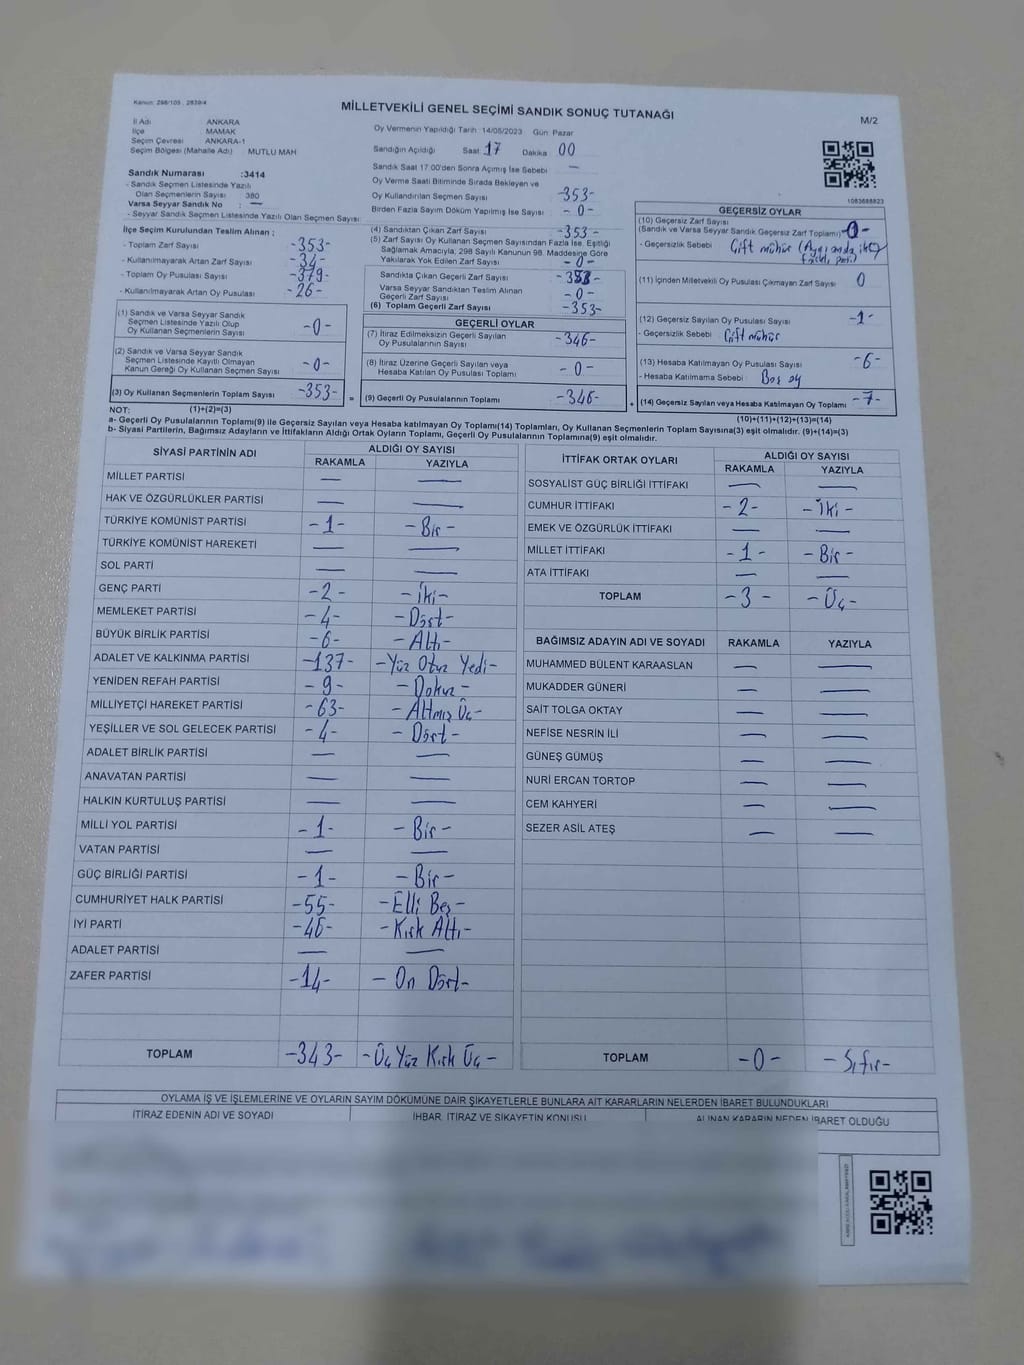 Kanun: 298/105 , 2839/4
MİLLETVEKİLİ GENEL SEÇİMİ SANDIK SONUÇ TUTANAĞI
M/2
İl Adı ANKARA
İlçe MAMAK
Seçim Çevresi ANKARA-1
Seçim Bölgesi (Mahalle Adı) MUTLU MAH
Oy Vermenin Yapıldığı Tarih 14/05/2023 Gün: Pazar
Sandığın Açıldığı Saat 17 Dakika 00
Sandık Saat 17:00'den Sonra Açımış İse Sebebi —
Oy Verme Saati Bitiminde Sırada Bekleyen ve
Oy Kullandırılan Seçmen Sayısı -353-
Birden Fazla Sayım Döküm Yapılmış İse Sayısı -0-
1083688823
Sandık Numarası :3414
- Sandık Seçmen Listesinde Yazılı
Olan Seçmenlerin Sayısı : 380
Varsa Seyyar Sandık No : —
- Seyyar Sandık Seçmen Listesinde Yazılı Olan Seçmen Sayısı:
İlçe Seçim Kurulundan Teslim Alınan ;
- Toplam Zarf Sayısı -353-
- Kullanılmayarak Artan Zarf Sayısı -34-
- Toplam Oy Pusulası Sayısı -379-
- Kullanılmayarak Artan Oy Pusulası -26-
(1) Sandık ve Varsa Seyyar Sandık
Seçmen Listesinde Yazılı Olup
Oy Kullanan Seçmenlerin Sayısı -0-
(2) Sandık ve Varsa Seyyar Sandık
Seçmen Listesinde Kayıtlı Olmayan
Kanun Gereği Oy Kullanan Seçmen Sayısı -0-
(3) Oy Kullanan Seçmenlerin Toplam Sayısı -353- =
(4) Sandıktan Çıkan Zarf Sayısı -353-
(5) Zarf Sayısı Oy Kullanan Seçmen Sayısından Fazla İse, Eşitliği
Sağlamak Amacıyla, 298 Sayılı Kanunun 98. Maddesine Göre
Yakılarak Yok Edilen Zarf Sayısı -0-
Sandıkta Çıkan Geçerli Zarf Sayısı -353-
Varsa Seyyar Sandıktan Teslim Alınan
Geçerli Zarf Sayısı -0-
(6) Toplam Geçerli Zarf Sayısı -353-
GEÇERLİ OYLAR
(7) İtiraz Edilmeksizin Geçerli Sayılan
Oy Pusulalarının Sayısı -346-
(8) İtiraz Üzerine Geçerli Sayılan veya
Hesaba Katılan Oy Pusulası Toplamı -0-
(9) Geçerli Oy Pusulalarının Toplamı -346- +
GEÇERSİZ OYLAR
(10) Geçersiz Zarf Sayısı
(Sandık ve Varsa Seyyar Sandık Geçersiz Zarf Toplamı) -0-
- Geçersizlik Sebebi : Çift mühür
(11) İçinden Milletvekili Oy Pusulası Çıkmayan Zarf Sayısı 0
(12) Geçersiz Sayılan Oy Pusulası Sayısı -1-
- Geçersizlik Sebebi : Çift mühür
(13) Hesaba Katılmayan Oy Pusulası Sayısı -6-
- Hesaba Katılmama Sebebi : Boş oy
(14) Geçersiz Sayılan veya Hesaba Katılmayan Oy Toplamı -7-
NOT: (1)+(2)=(3) (10)+(11)+(12)+(13)=(14)
a- Geçerli Oy Pusulalarının Toplamı(9) ile Geçersiz Sayılan veya Hesaba katılmayan Oy Toplamı(14) Toplamları, Oy Kullanan Seçmenlerin Toplam Sayısına(3) eşit olmalıdır. (9)+(14)=(3)
b- Siyasi Partilerin, Bağımsız Adayların ve İttifakların Aldığı Ortak Oyların Toplamı, Geçerli Oy Pusulalarının Toplamına(9) eşit olmalıdır.
SİYASİ PARTİNİN ADI ALDIĞI OY SAYISI
RAKAMLA YAZIYLA
MİLLET PARTİSİ — —
HAK VE ÖZGÜRLÜKLER PARTİSİ — —
TÜRKİYE KOMÜNİST PARTİSİ -1- -Bir-
TÜRKİYE KOMÜNİST HAREKETİ — —
SOL PARTİ — —
GENÇ PARTİ -2- -İki-
MEMLEKET PARTİSİ -4- -Dört-
BÜYÜK BİRLİK PARTİSİ -6- -Altı-
ADALET VE KALKINMA PARTİSİ -137- -Yüz Otuz Yedi-
YENİDEN REFAH PARTİSİ -9- -Dokuz-
MİLLİYETÇİ HAREKET PARTİSİ -63- -Altmış Üç-
YEŞİLLER VE SOL GELECEK PARTİSİ -4- -Dört-
ADALET BİRLİK PARTİSİ — —
ANAVATAN PARTİSİ — —
HALKIN KURTULUŞ PARTİSİ — —
MİLLİ YOL PARTİSİ -1- -Bir-
VATAN PARTİSİ — —
GÜÇ BİRLİĞİ PARTİSİ -1- -Bir-
CUMHURİYET HALK PARTİSİ -55- -Elli Beş-
İYİ PARTİ -46- -Kırk Altı-
ADALET PARTİSİ — —
ZAFER PARTİSİ -14- -On Dört-
TOPLAM -343- -Üç Yüz Kırk Üç-
İTTİFAK ORTAK OYLARI ALDIĞI OY SAYISI
RAKAMLA YAZIYLA
SOSYALİST GÜÇ BİRLİĞİ İTTİFAKI — —
CUMHUR İTTİFAKI -2- -İki-
EMEK VE ÖZGÜRLÜK İTTİFAKI — —
MİLLET İTTİFAKI -1- -Bir-
ATA İTTİFAKI — —
TOPLAM -3- -Üç-
BAĞIMSIZ ADAYIN ADI VE SOYADI RAKAMLA YAZIYLA
MUHAMMED BÜLENT KARAASLAN — —
MUKADDER GÜNERİ — —
SAİT TOLGA OKTAY — —
NEFİSE NESRİN İLİ — —
GÜNEŞ GÜMÜŞ — —
NURİ ERCAN TORTOP — —
CEM KAHYERİ — —
SEZER ASİL ATEŞ — —
TOPLAM -0- -Sıfır-
OYLAMA İŞ VE İŞLEMLERİNE VE OYLARIN SAYIM DÖKÜMÜNE DAİR ŞİKAYETLERLE BUNLARA AİT KARARLARIN NELERDEN İBARET BULUNDUKLARI
İTİRAZ EDENİN ADI VE SOYADI İHBAR, İTİRAZ VE ŞİKAYETİN KONUSU ALINAN KARARIN NEDEN İBARET OLDUĞU